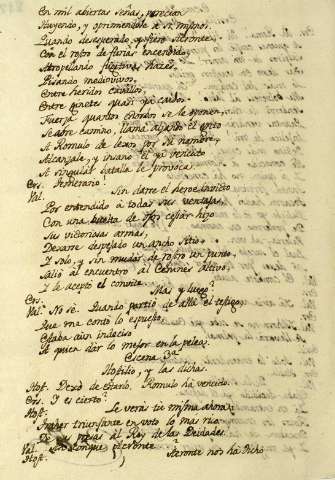 En mil abiertas señas, parecian
Huyendo, y oprimiendole a si mismos.
Quando desesperado, y fiero Acronte
Con el rostro de furias encendido,
Atropellando fugitivas hazes,
Pisando medio vivos,
Entre heridos cavallos,
Entre ginetes quasi ya caidos
Fuerza quantos estorvos se le oponen,
Se abre camino, llama alzando el grito
A Romulo de lexos por su nombre,
Alcanzale, y insano el ya vencido
A singular batalla le provoca.
Ers. Temerario!
Val. Sin darse el heroe invicto
Por entendido a todas sus ventajas,
Con una buelta de ojos cessar hizo
Sus victoriosas armas,
Dexarse despejado un ancho sitio
Y solo, y sin mudar de rostro un punto
Salió al encuentro al Cenines altivo,
Y le aceptó el convite.
Ers. Mas y luego?
Val. No sé. Quando partió de allá el testigo,
Que me contó lo expuesto,
Estaba aun indeciso
A quien dar lo mejor en la pelea.
Escena 3ª
Hostilio, y las dichas.
Host. Dexó de estarlo. Romulo ha vencido.
Ers. Y es cierto?
Host. Le verás tu misma ahora
Traher triunfante en voto lo mas rico
De presas al Rey de las Deidades.
Val. Aunque
Host. Acronte nos ha dicho